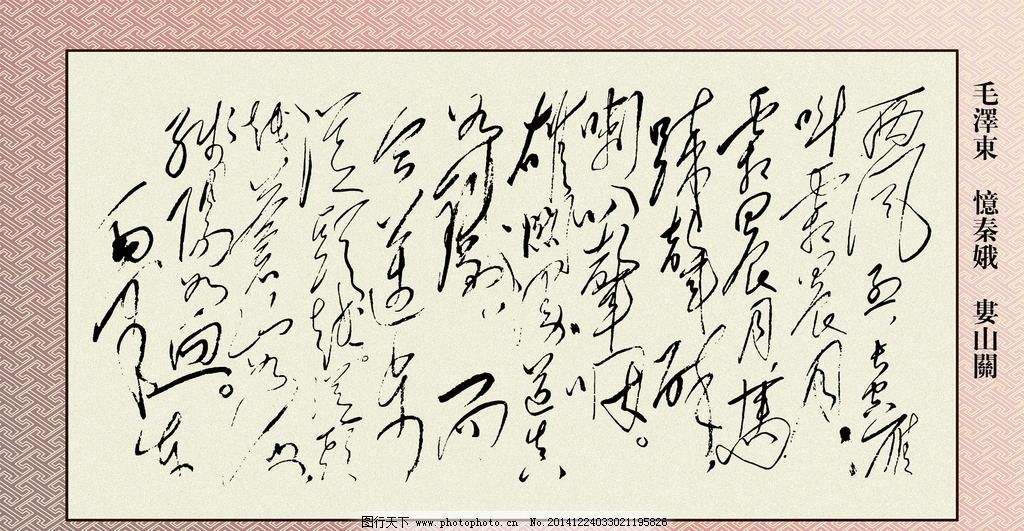 毛澤東 憶秦娥 婁山關
西风烈,长空雁
叫霜晨月。
霜晨月,馬
蹄聲碎,
喇叭聲咽。
雄關漫道真
如鐵,而
今邁步
從頭越。從頭
越,蒼山如海,
殘陽如血。
图行天下 www.photophoto.cn No.20141224033021195826